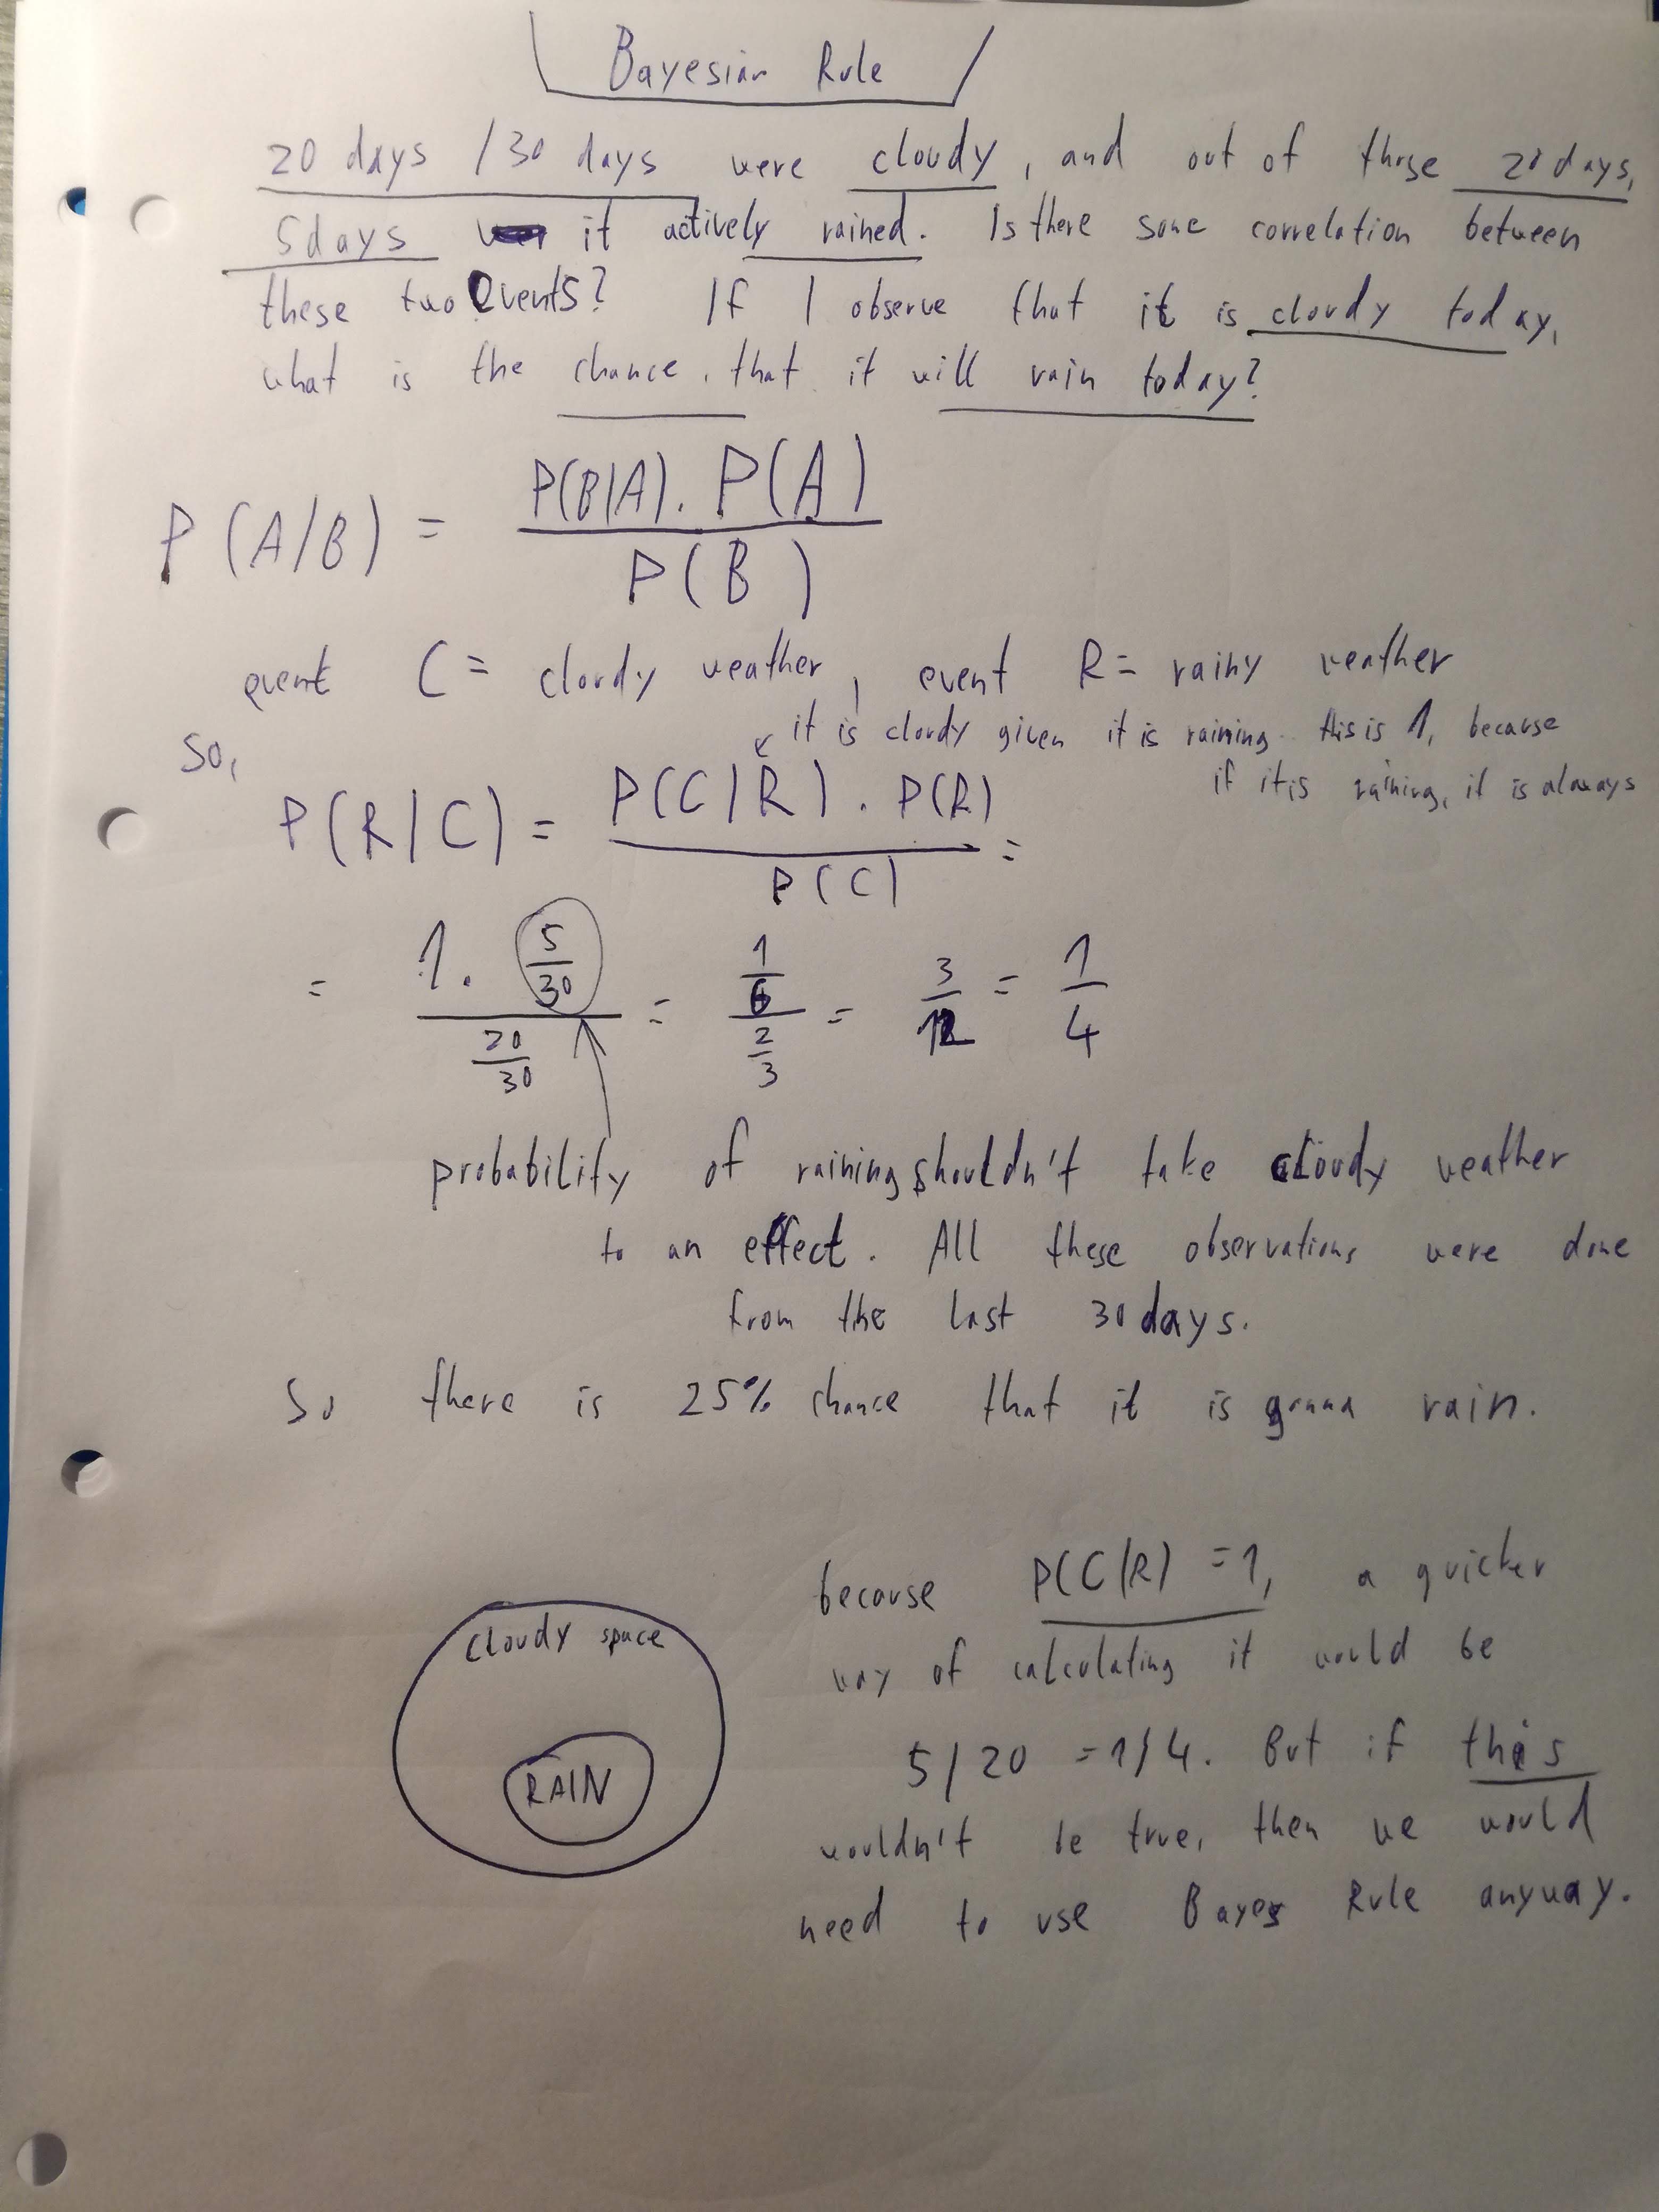 Bayesian Rule
20 days / 30 days were cloudy, and out of those 20 days,
5 days it actively rained. Is there some correlation between
these two events? If I observe that it is cloudy today,
what is the chance, that it will rain today?
P(A/B) = P(B|A). P(A) / P(B)
event C = cloudy weather, event R = rainy weather
it is cloudy given it is raining. this is 1, because
So, if it is raining, it is always
P(R|C) = P(C|R). P(R) / P(C) =
= 1. 5/30 / 20/30 = 1/6 / 2/3 = 3/12 = 1/4
probability of raining shouldn't take cloudy weather
to an effect. All these observations were done
from the last 30 days.
So there is 25% chance that it is gonna rain.
because P(C|R) = 1, a quicker
cloudy space
way of calculating it would be
5/20 = 1/4. But if this
RAIN
wouldn't be true, then we would
need to use Bayes Rule anyway.